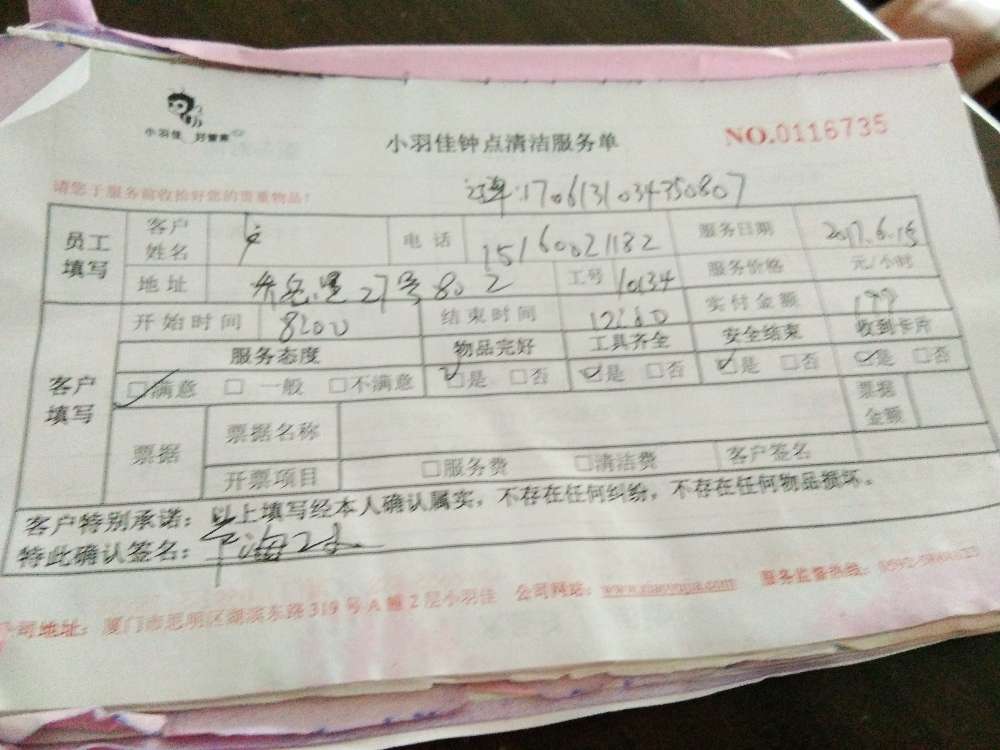 小羽佳 好管家
小羽佳钟点清洁服务单
NO.0116735
请您于服务前收拾好您的贵重物品!
订单:1706131034350807
员工填写 客户姓名 电话 15160021182 服务日期 2017.6.15
地址 27号802 工号 10134 服务价格 元/小时
开始时间 8:00 结束时间 12:00 实付金额
客户填写 服务态度 物品完好 工具齐全 安全结束 收到卡片
☑满意 □一般 □不满意 ☑是 □否 ☑是 □否 ☑是 □否 ☑是 □否
票据 票据名称 票据金额
开票项目 □服务费 □清洁费 客户签名
客户特别承诺:以上填写经本人确认属实,不存在任何纠纷,不存在任何物品损坏。
特此确认签名:
公司地址:厦门市思明区湖滨东路319号A幢2层小羽佳 公司网站: 服务监督热线: